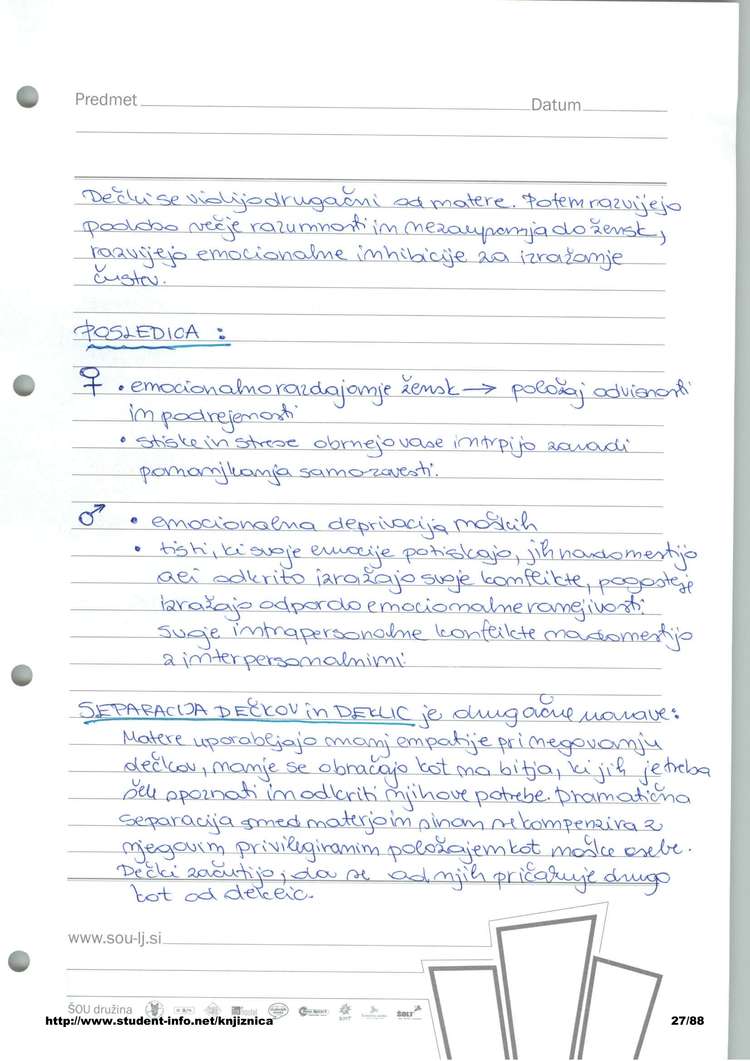 Predmet
Datum
Dečki se vidijo drugačni od matere. Potem razvijejo
podobo večje razumnosti in nezaupanja do žensk,
razvijejo emocionalne inhibicije za izražanje
čustev.
POSLEDICA :
♀ • emocionalno razdajanje žensk → položaj odvisnosti
in podrejenosti
• stiske in strese obrnejo vase in trpijo zaradi
pomanjkanja samozavesti.
♂ • emocionalna deprivacija moških
• tisti, ki svoje emocije potiskajo, jih nadomestijo
ali odkrito izražajo svoje konflikte, pogosteje
izražajo odpor do emocionalne ranljivosti.
svoje intrapersonalne konflikte nadomestijo
z interpersonalnimi.
SEPARACIJA DEČKOV in DEKLIC je drugačne narave:
Matere uporabljajo manj empatije pri negovanju
dečkov, manje se obračajo kot na bitja, ki jih je treba
šele spoznati in odkriti njihove potrebe. Dramatična
separacija med materjo in sinom se kompenzira z
njegovim privilegiranim položajem kot moške osebe.
Dečki začutijo, da se od njih pričakuje drugo
kot od deklic.
www.sou-lj.si
ŠOU družina
http://www.student-info.net/knjiznica
27/88